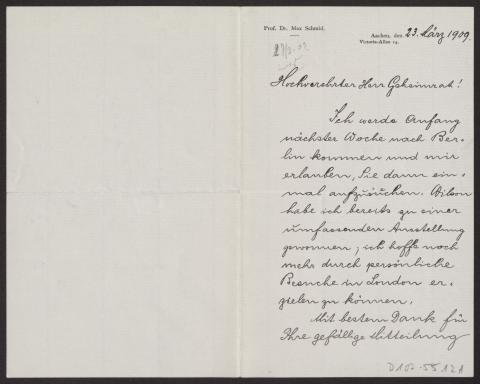 Prof. Dr. Max Schmid.
Aachen, den 23. März 1909.
Victoria-Allee 14.
Hochverehrter Herr Geheimrat!
Ich werde Anfang
nächster Woche nach Ber-
lin kommen und mir
erlauben, Sie dann ein-
mal aufzusuchen. Wilson
habe ich bereits zu einer
umfassenden Ausstellung
gewonnen; ich hoffe noch
mehr durch persönliche
Besuche in London er-
zielen zu können.
Mit bestem Dank für
Ihre gefällige Mitteilung